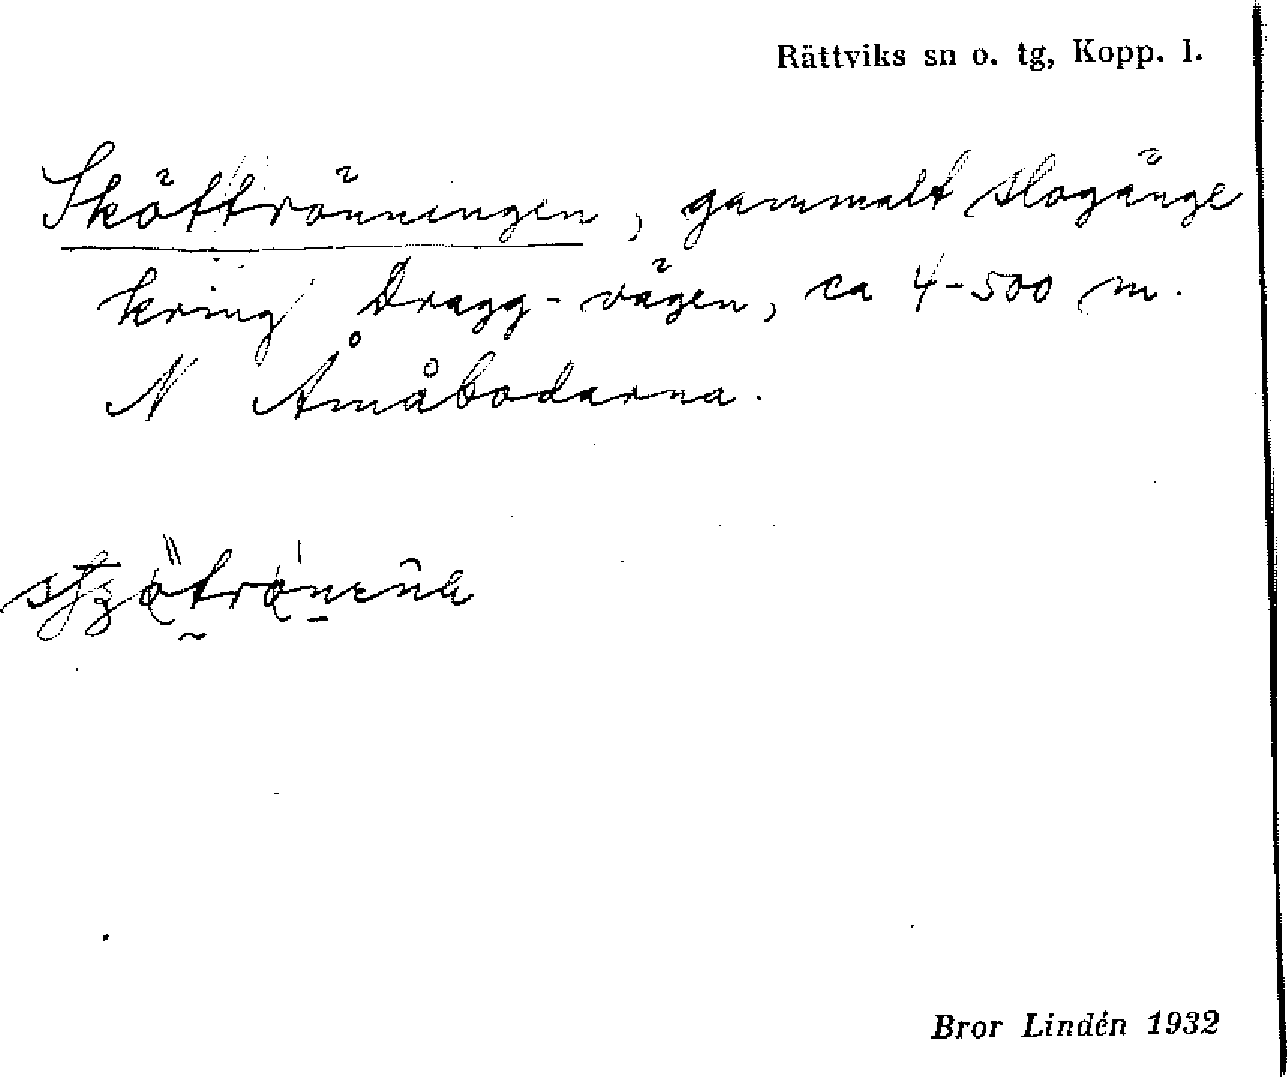 Rättviks sn o. tg, Kopp. l.
Sköttrönningen, gammalt slogänge
kring Dragg-vägen, ca 4-500 m.
N Åmåbodarna.
Bror Lindén 1932